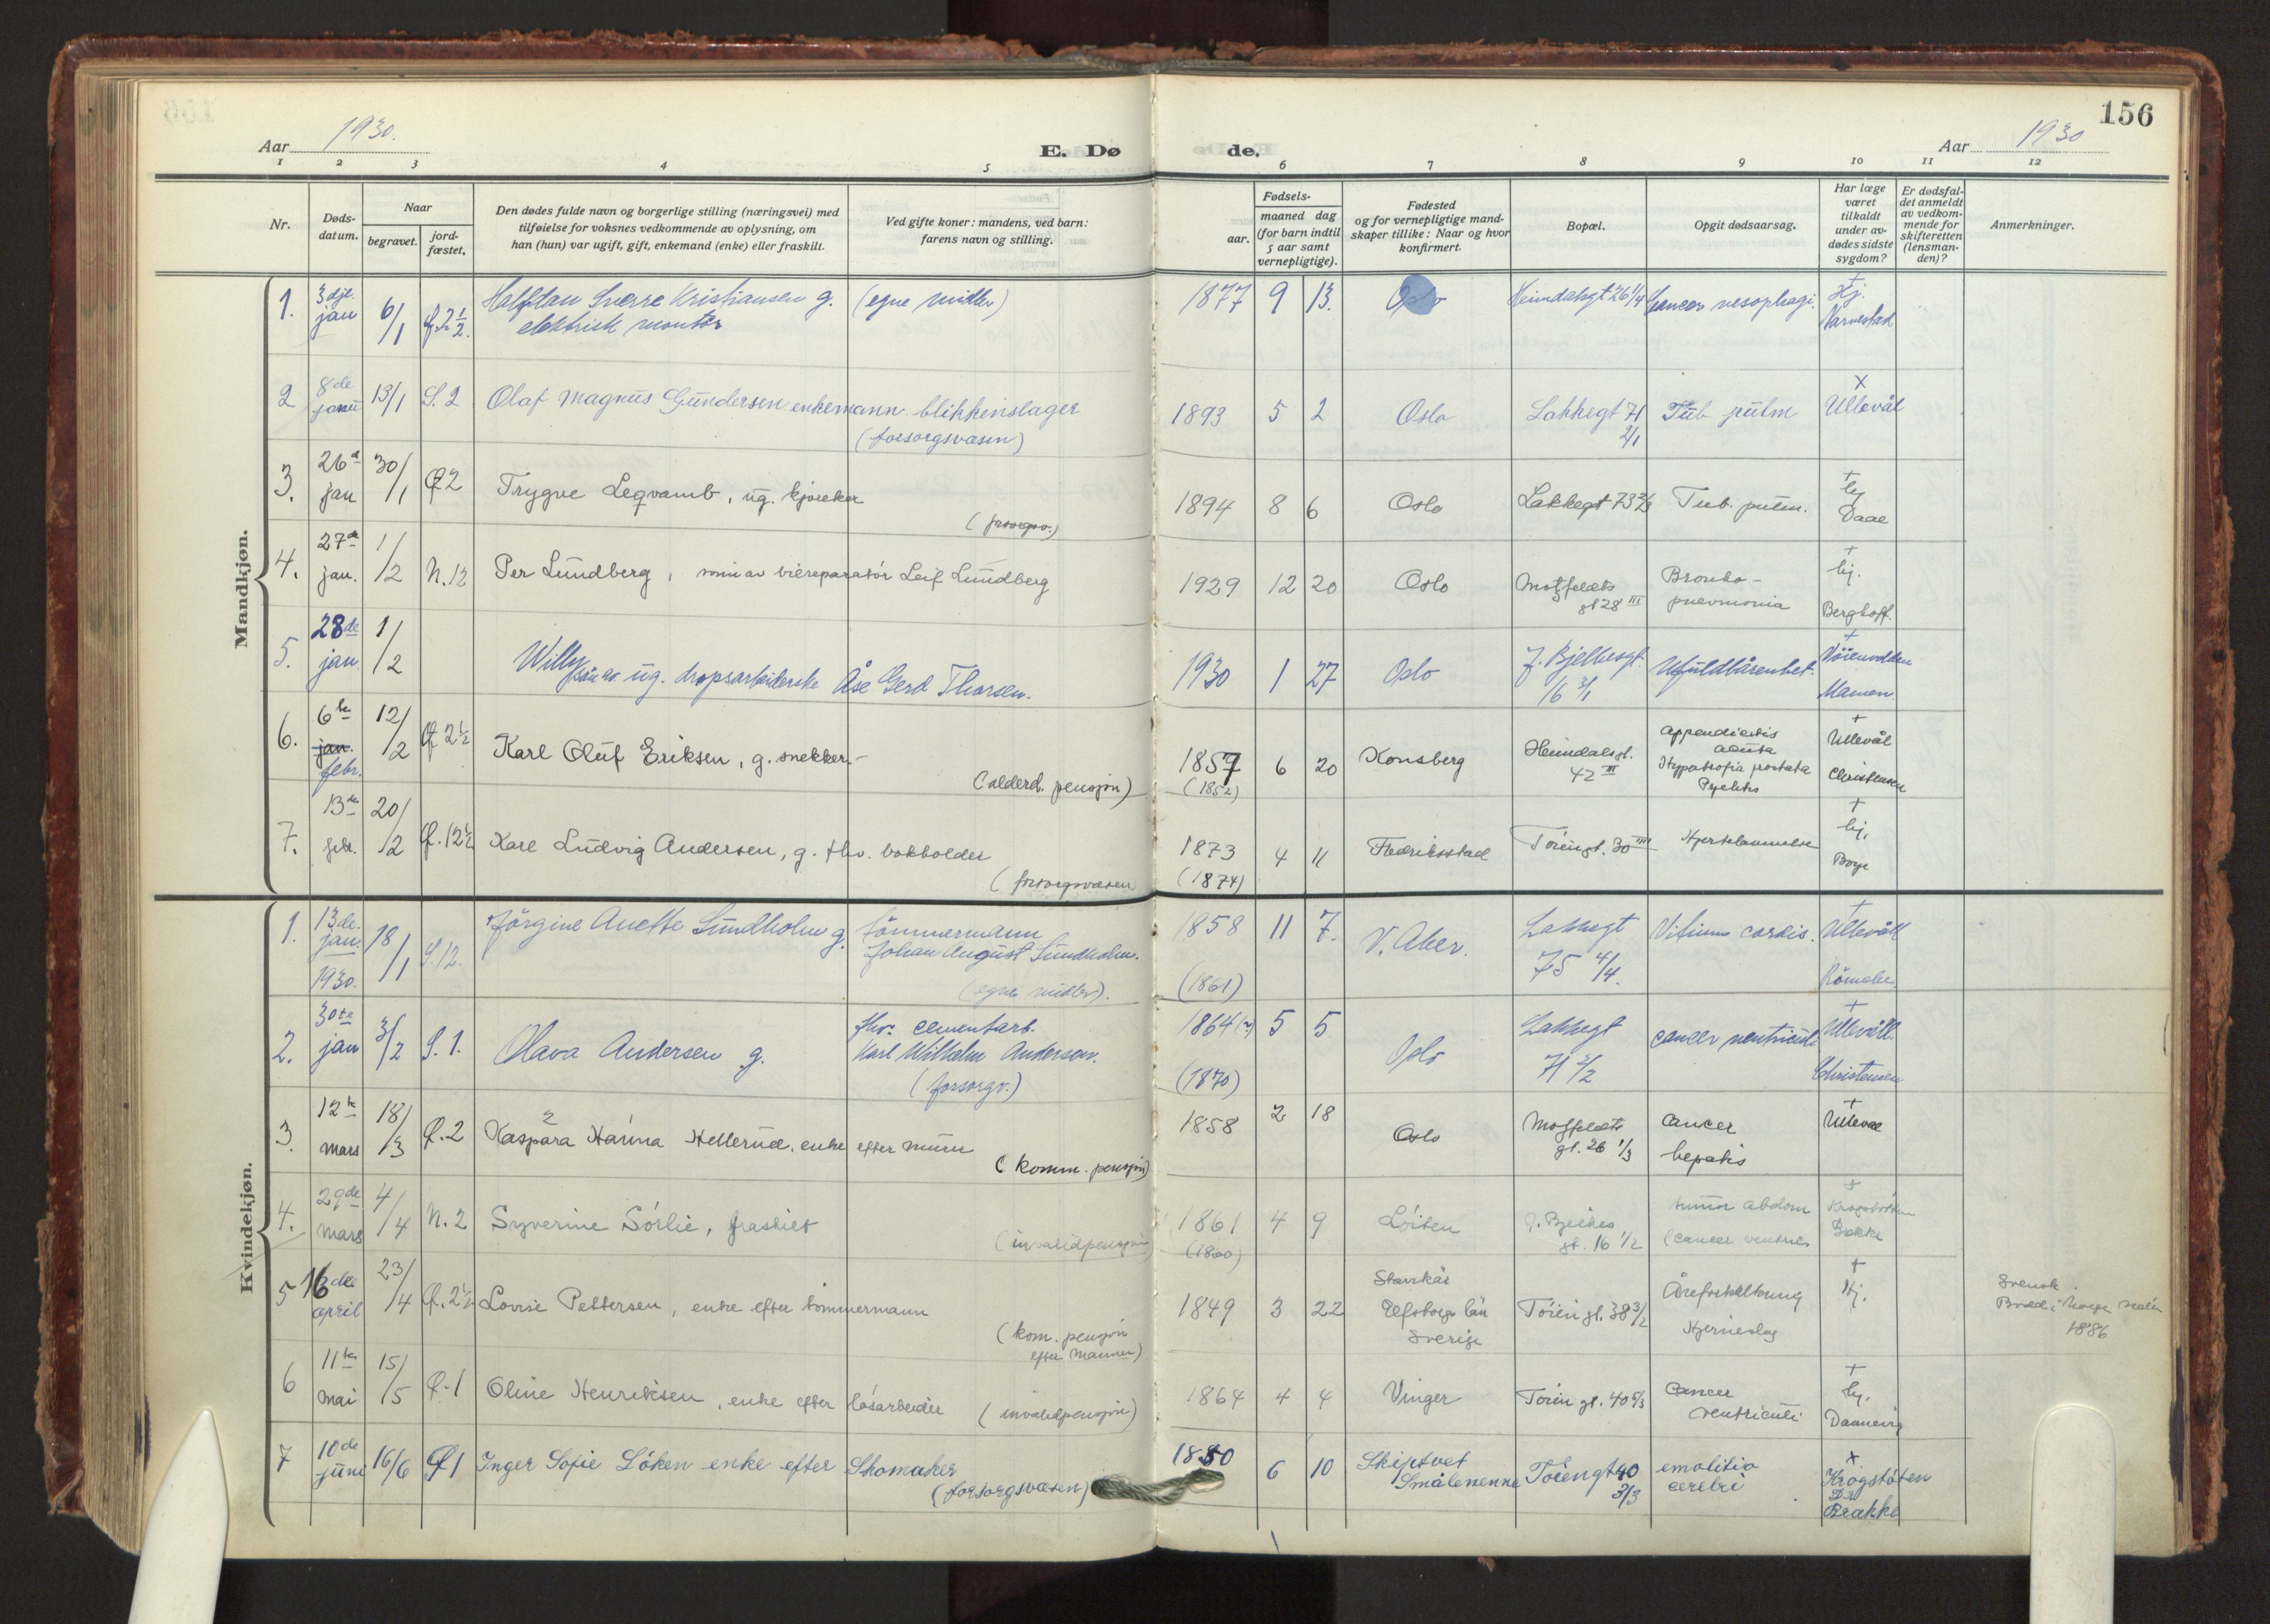 156
Aar 1930.
E. Dø
de.
Aar 1930
1 2 3 4 5 6 7 8 9 10 11 12
Nr.
Døds-
datum.
Naar
begravet.
jord-
fæstet.
Den dødes fulde navn og borgerlige stilling (næringsvei) med
tilføielse for voksnes vedkommende av oplysning, om
han (hun) var ugift, gift, enkemand (enke) eller fraskilt.
Ved gifte koner: mandens, ved barn:
farens navn og stilling.
Fødsels-
aar.
maaned dag
(for barn indtil
5 aar samt
vernepligtige).
Fødested
og for vernepligtige mand-
skaper tillike: Naar og hvor
konfirmert.
Bopæl.
Opgit dødsaarsag.
Har læge
været
tilkaldt
under av-
dødes sidste
sygdom?
Er dødsfal-
det anmeldt
av vedkom-
mende for
skifteretten
(lensman-
den)?
Anmerkninger.
Mandkjøn.
1. 3dje jan 6/1 Halfdan Sverre Kristiansen g. (egne midler) 1877 9 13. Oslo Heimdalsgt 26 1/4 Cancer oesophagi. Hj.
elektrisk montør
2 8de januar 13/1 S. 2 Olaf Magnus Gundersen enkemann blikkenslager 1893 5 2 Oslo Lakkegt 71 Tub pulm Ullevål
(forsorgsvæsen) 2/1
3. 26de jan 30/1 Q 2 Trygve Leqvamb, ug. kjører 1894 8 6 Oslo Lakkegt 73 2/3 Tub. pulm. Hj Daae
(forsorgsv.)
4. 27de jan. 1/2 N. 12 Per Lundberg, sønn av bilreparatør Leif Lundberg 1929 12 20 Oslo Motzfeldts Broncho- hj.
gt 28 III pneumonia Berghoff.
5. 28de jan. 1/2 Willy sønn av ug. dropsarbeiderske Åse Gerd Thorsen. 1930 1 27 Oslo J. Bjelkesgt. Ufuldbårenhet.
16 3/1
6. 6te jan. febr. 12/2 Q 2 1/2 Karl Oluf Eriksen, g. snekker.- 1857 6 20 Konsberg Heimdalsgt. Appendicitis Ullevål
(alderd. pensjon) (1852) 42 III acuta
Hypertrofia prostata Christensen
Pyelitis
7. 13de febr. 20/2 Q. 12 1/2 Karl Ludvig Andersen, g. fhv. bokholder 1873 4 11 Fredriksstad Tøiengt. 30 III Hjertelammelse hj.
(forsorgsvæsen) (1874) Boye
Kvindekjøn.
1. 13de jan. 1930. 18/1 S. 12. Jørgine Anette Sundholm g. tømmermann 1858 11 7. V. Aker. Lakkegt Vitium cordis. Ullevåll
Johan August Sundholm. 75 4/4.
(egne midler). (1861)
2. 30te jan 3/2 S. 1. Olava Andersen g. fhv. cementarb. 1864 (?) 5 5 Oslo Lakkegt cancer ventriculi Ullevåll.
Karl Wilhelm Andersen. 71 2/2
(forsorgv.) (1870) Christensen
3. 12te mars 18/3 Q. 2 Kaspara Hanna Hellerud, enke efter murer 1858 2 18 Oslo Motzfeldts Cancer Ullevål
(komm. pensjon) gt. 26 1/3 hepatis
4. 29de mars 4/4 N. 2 Syverine Sørlie, fraskilt 1861 4 9 Løiten J. Bjelkes tumor abdom Krogstøtten
(invalidpensjon) (1860) gt. 16 1/2 (cancer ventric. Bakke
5 16de april 23/4 Q. 2 1/2 Lovise Pettersen, enke efter tømmermann 1849 3 22 Starrkär Elfsborgs län Sverige Tøiengt. 38 3/2 Åreforkalkning Hj. Svensk.
(kom. pensjon Hjerneslag Bodd i Norge siden
efter mannen) 1886
6 11te mai 15/5 Q. 1 Oline Henriksen, enke efter løsarbeider (invalidpensjon) 1864 4 4 Vinger Tøiengt. 40 5/3 Cancer hj.
ventriculi Daanevig
7 10de juni 16/6 Q 1 Inger Sofie Løken enke efter Skomaker 1850 6 10 Skiptvet Tøiengt 40 emolitio Krogstøten
(forsorgsvæsen) Smålenenne 3/3 cerebri Dr
Brakke